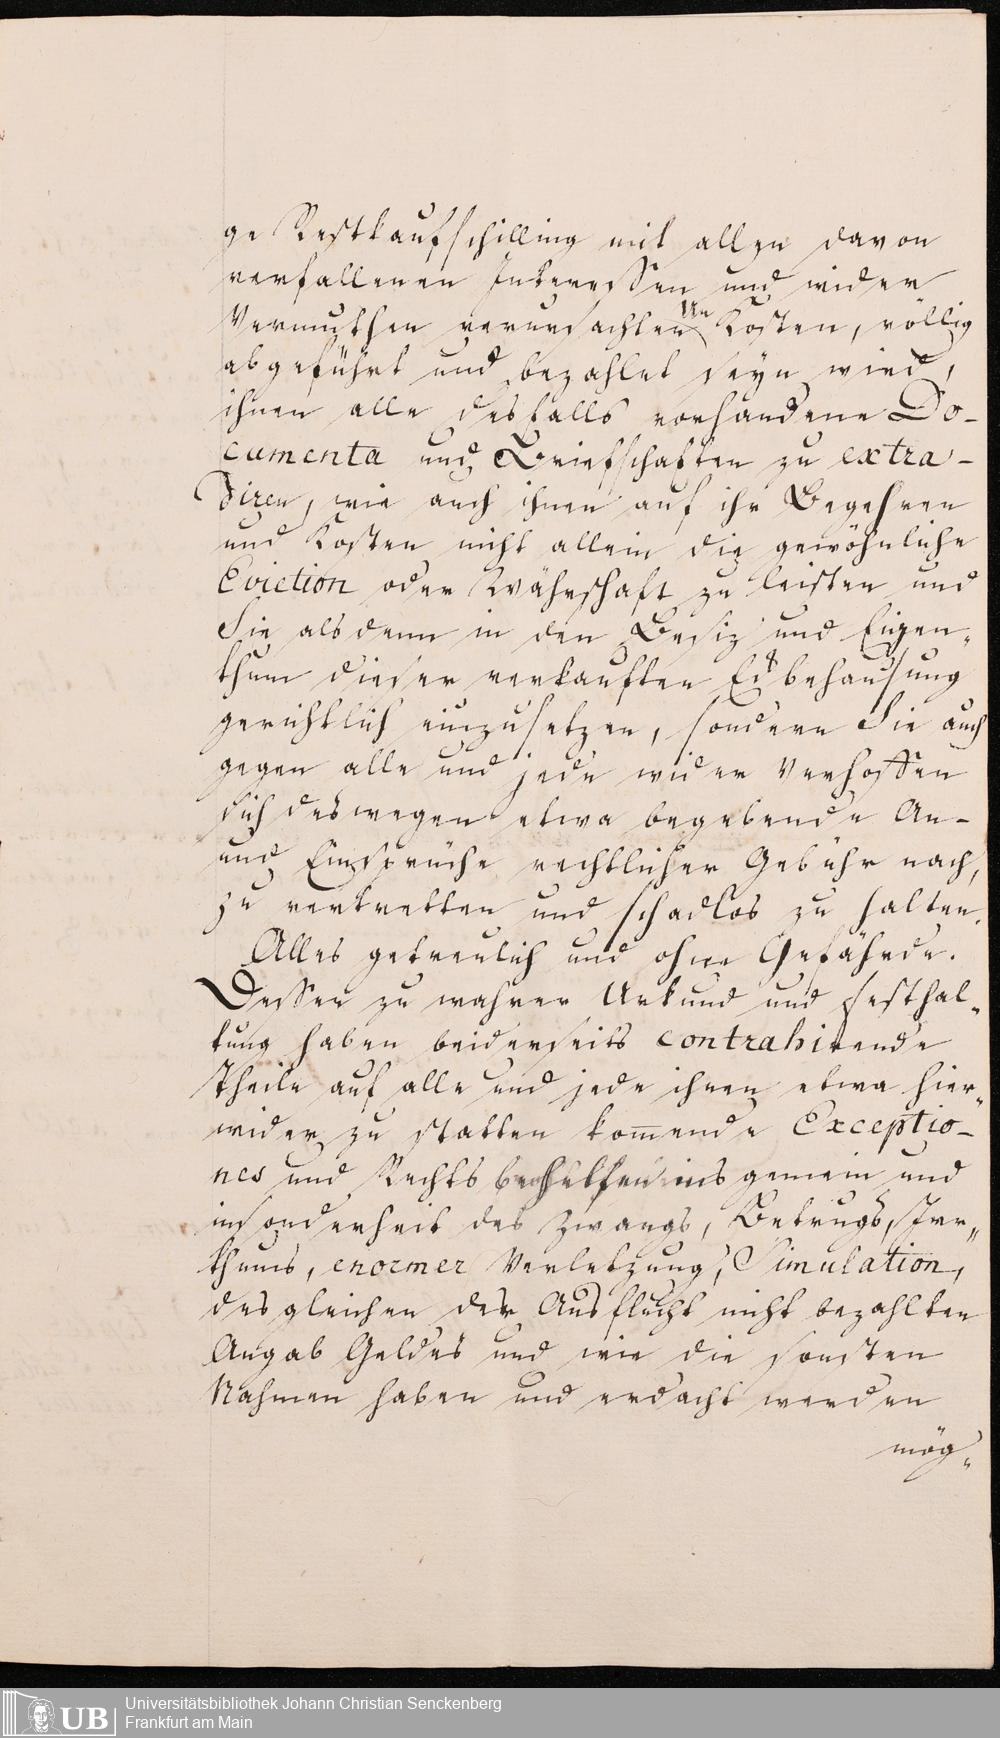 ge Restkaufschilling mit allen davon
verfallenen Interessen und wider
Vermuthen verursachten Un Kosten, völlig
abgeführt und bezahlet seyn wird,
ihnen alle desfalls vorhandene Do-
cumenta und Briefschaften zu extra-
diren, wie auch ihnen auf ihr Begehren
und Kosten nicht allein die gewöhnliche
Eviction oder Währschaft zu leisten und
Sie alsdenn in den Besiz und Eigen-
thum dieser verkauften Eckbehausung
gerichtlich einzusetzen, sondern Sie auch
gegen alle und jede wider Verhoffen
sich deswegen etwa begebende An-
und Einsprüche rechtlicher Gebühr nach,
zu vertretten und schadlos zu halten.
Alles getreulich und ohne Gefährde.
Dessen zu wahrer Urkund und festhal-
tung haben beiderseits contrahirende
Theile auf alle und jede ihnen etwa hier-
wider zu statten kom̅ende Exceptio-
nes und Rechts behelfen ins gemein und
insonderheit des Zwangs, Betrugs, Irr-
thums, enormer Verletzung, Simulation,
desgleichen der Ausflucht nicht bezahlten
Angab Geldes und wie die sonsten
Nahmen haben und erdacht werden
mög-
UB
Universitätsbibliothek Johann Christian Senckenberg
Frankfurt am Main